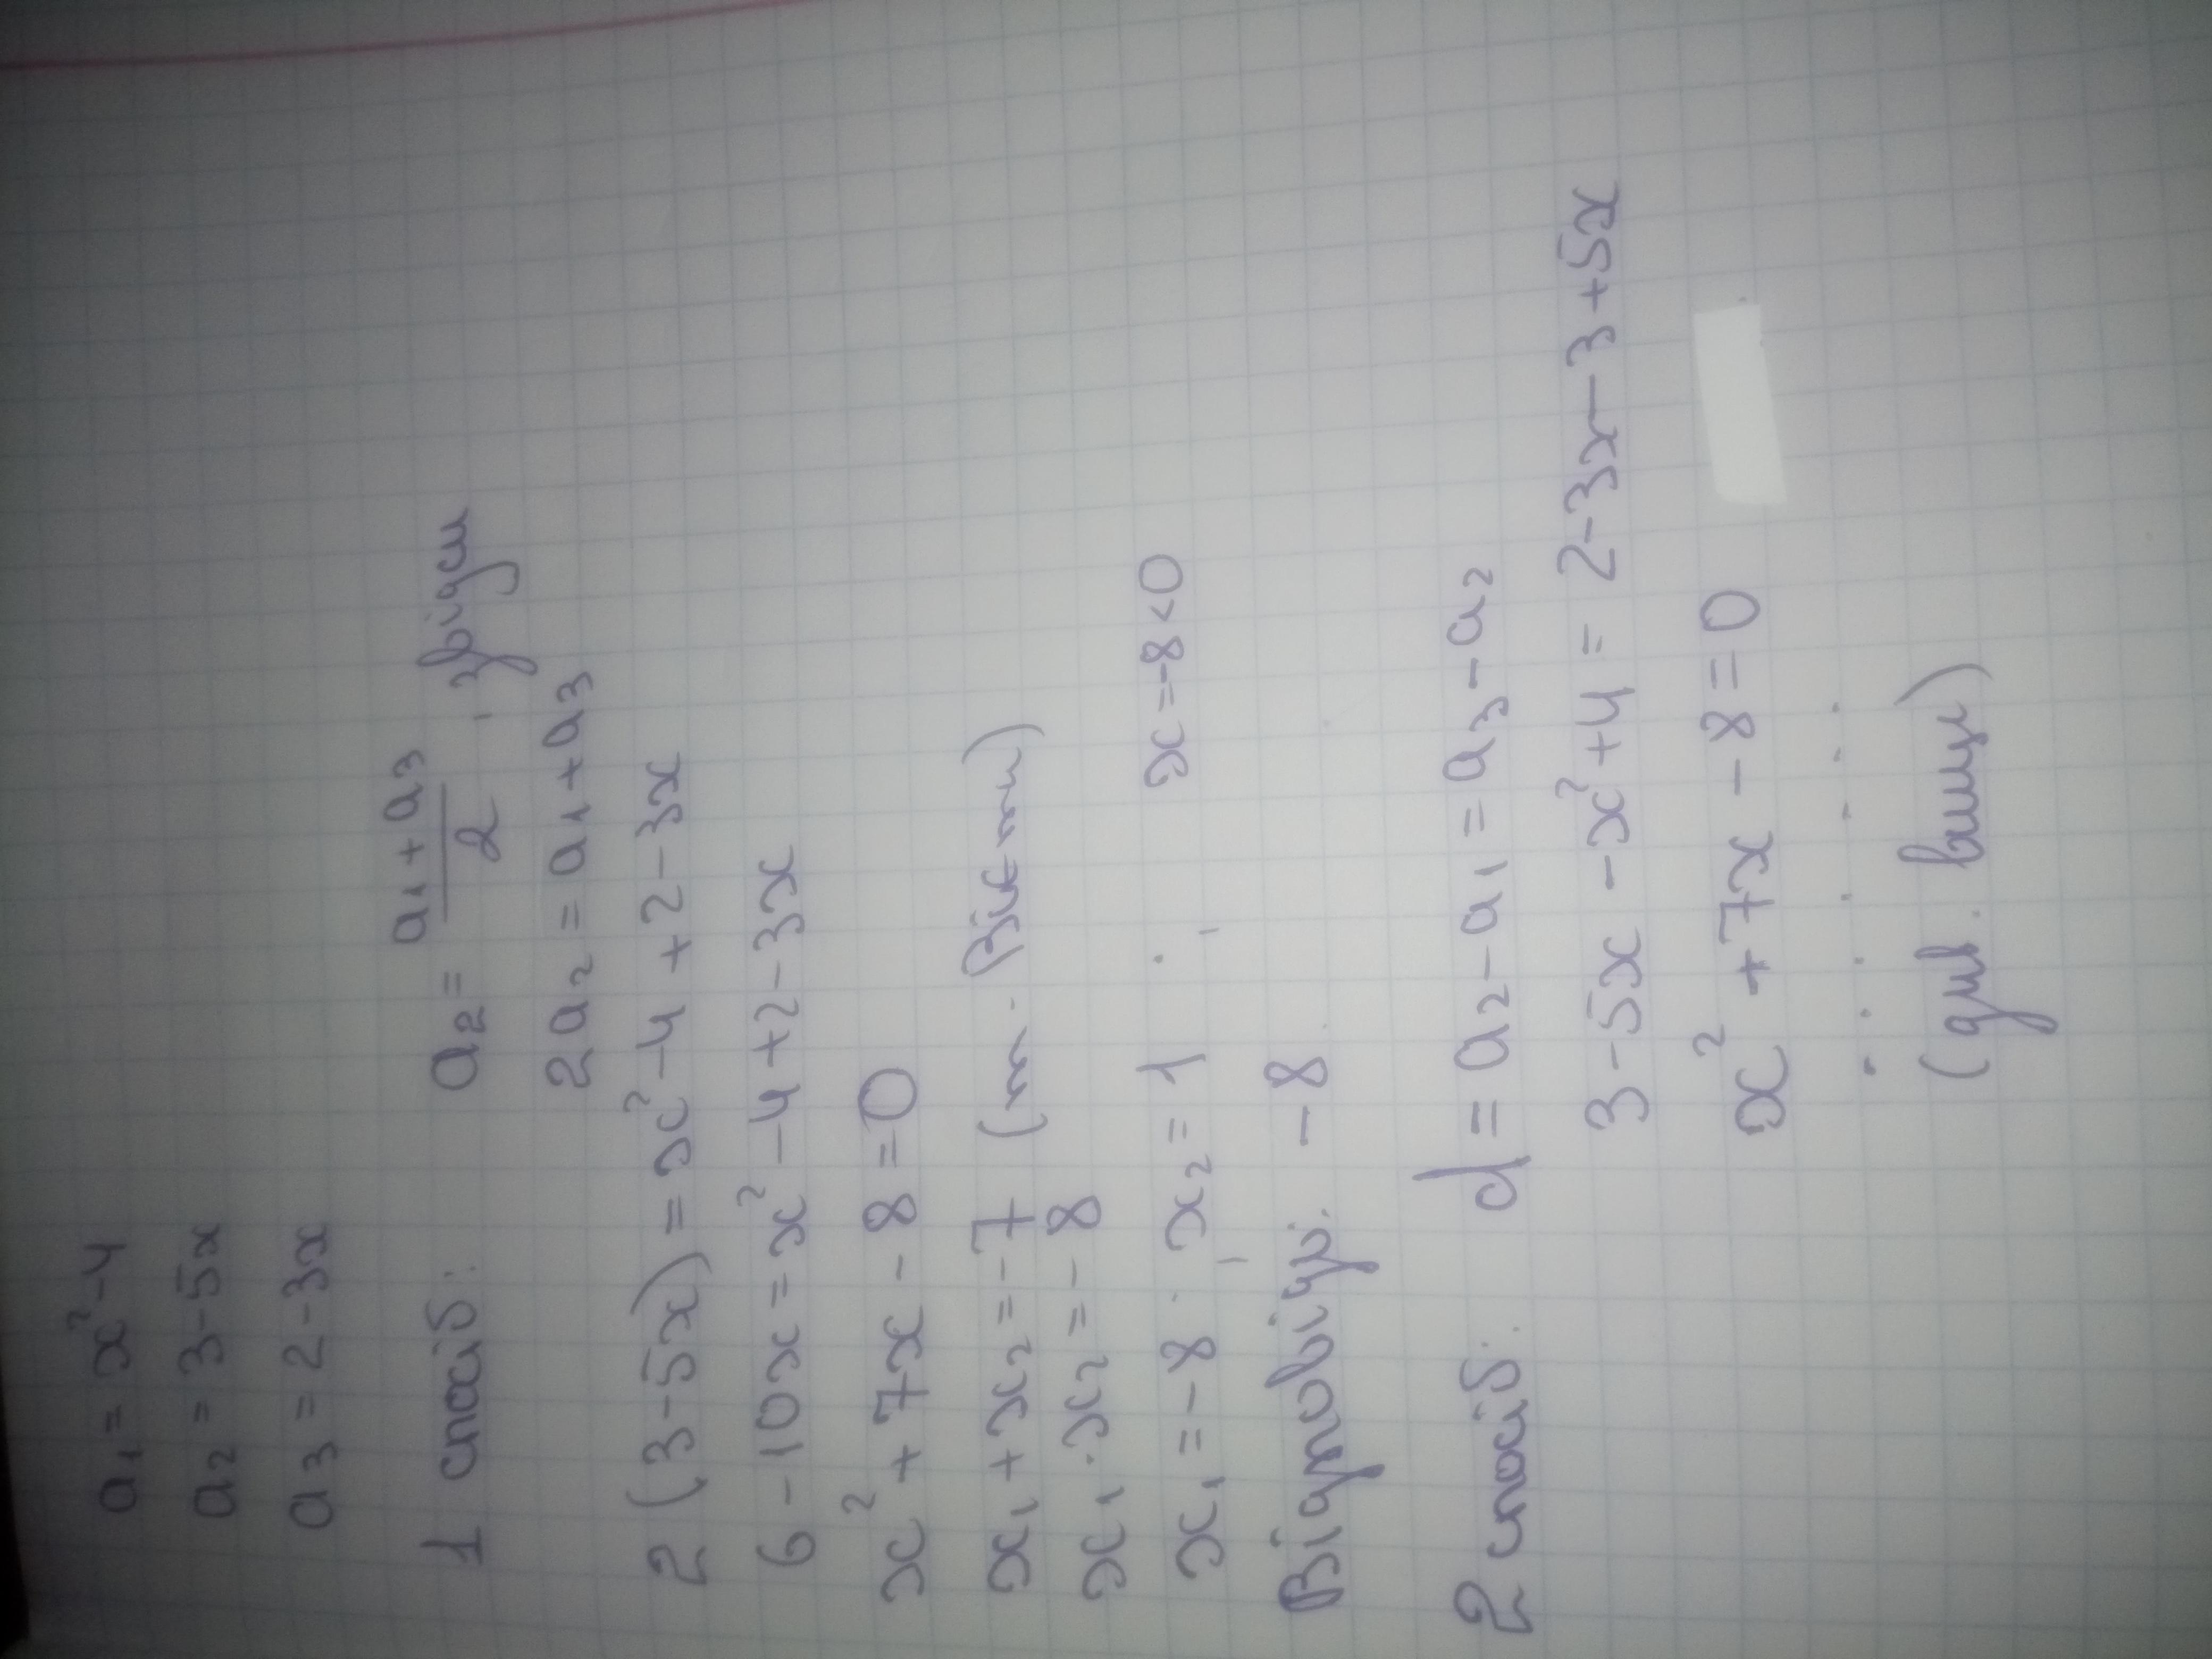 a₁ = x² - 4
a₂ = 3 - 5x
a₃ = 2 - 3x
1 спосіб: a₂ = (a₁ + a₃)/2, звідси
2a₂ = a₁ + a₃
2(3 - 5x) = x² - 4 + 2 - 3x
6 - 10x = x² - 4 + 2 - 3x
x² + 7x - 8 = 0
x₁ + x₂ = -7 (т. Вієтта)
x₁ · x₂ = -8
x₁ = -8, x₂ = 1, x = -8 < 0
Відповідь: -8.
2 спосіб: d = a₂ - a₁ = a₃ - a₂
3 - 5x - x² + 4 = 2 - 3x - 3 + 5x
x² + 7x - 8 = 0
. . . . . . .
(див. вище)